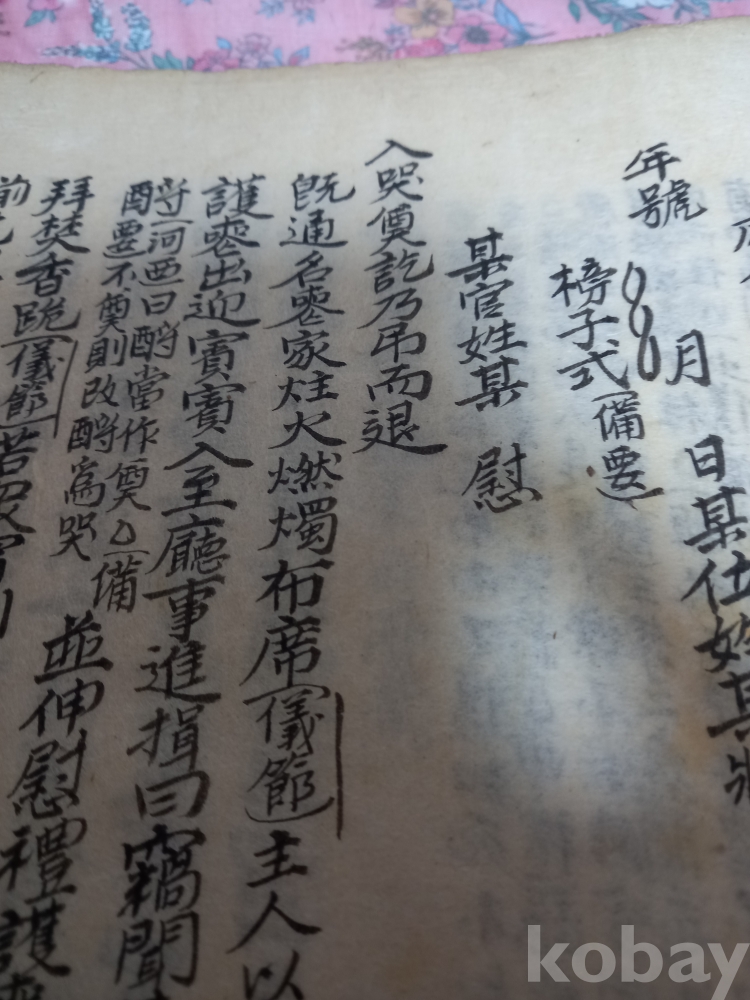 年號 月 日某仕姓某狀
榜子式備要
某官姓某 慰
入哭奠訖乃吊而退
旣通名喪家炷火燃燭布席儀節主人以
護喪出迎賓賓入至廳事進揖曰竊聞
酹河西曰酹當作奠備
酹要不奠則改酹爲哭
並伸慰禮護喪
拜焚香跪儀節若衆賓則
前
kobay